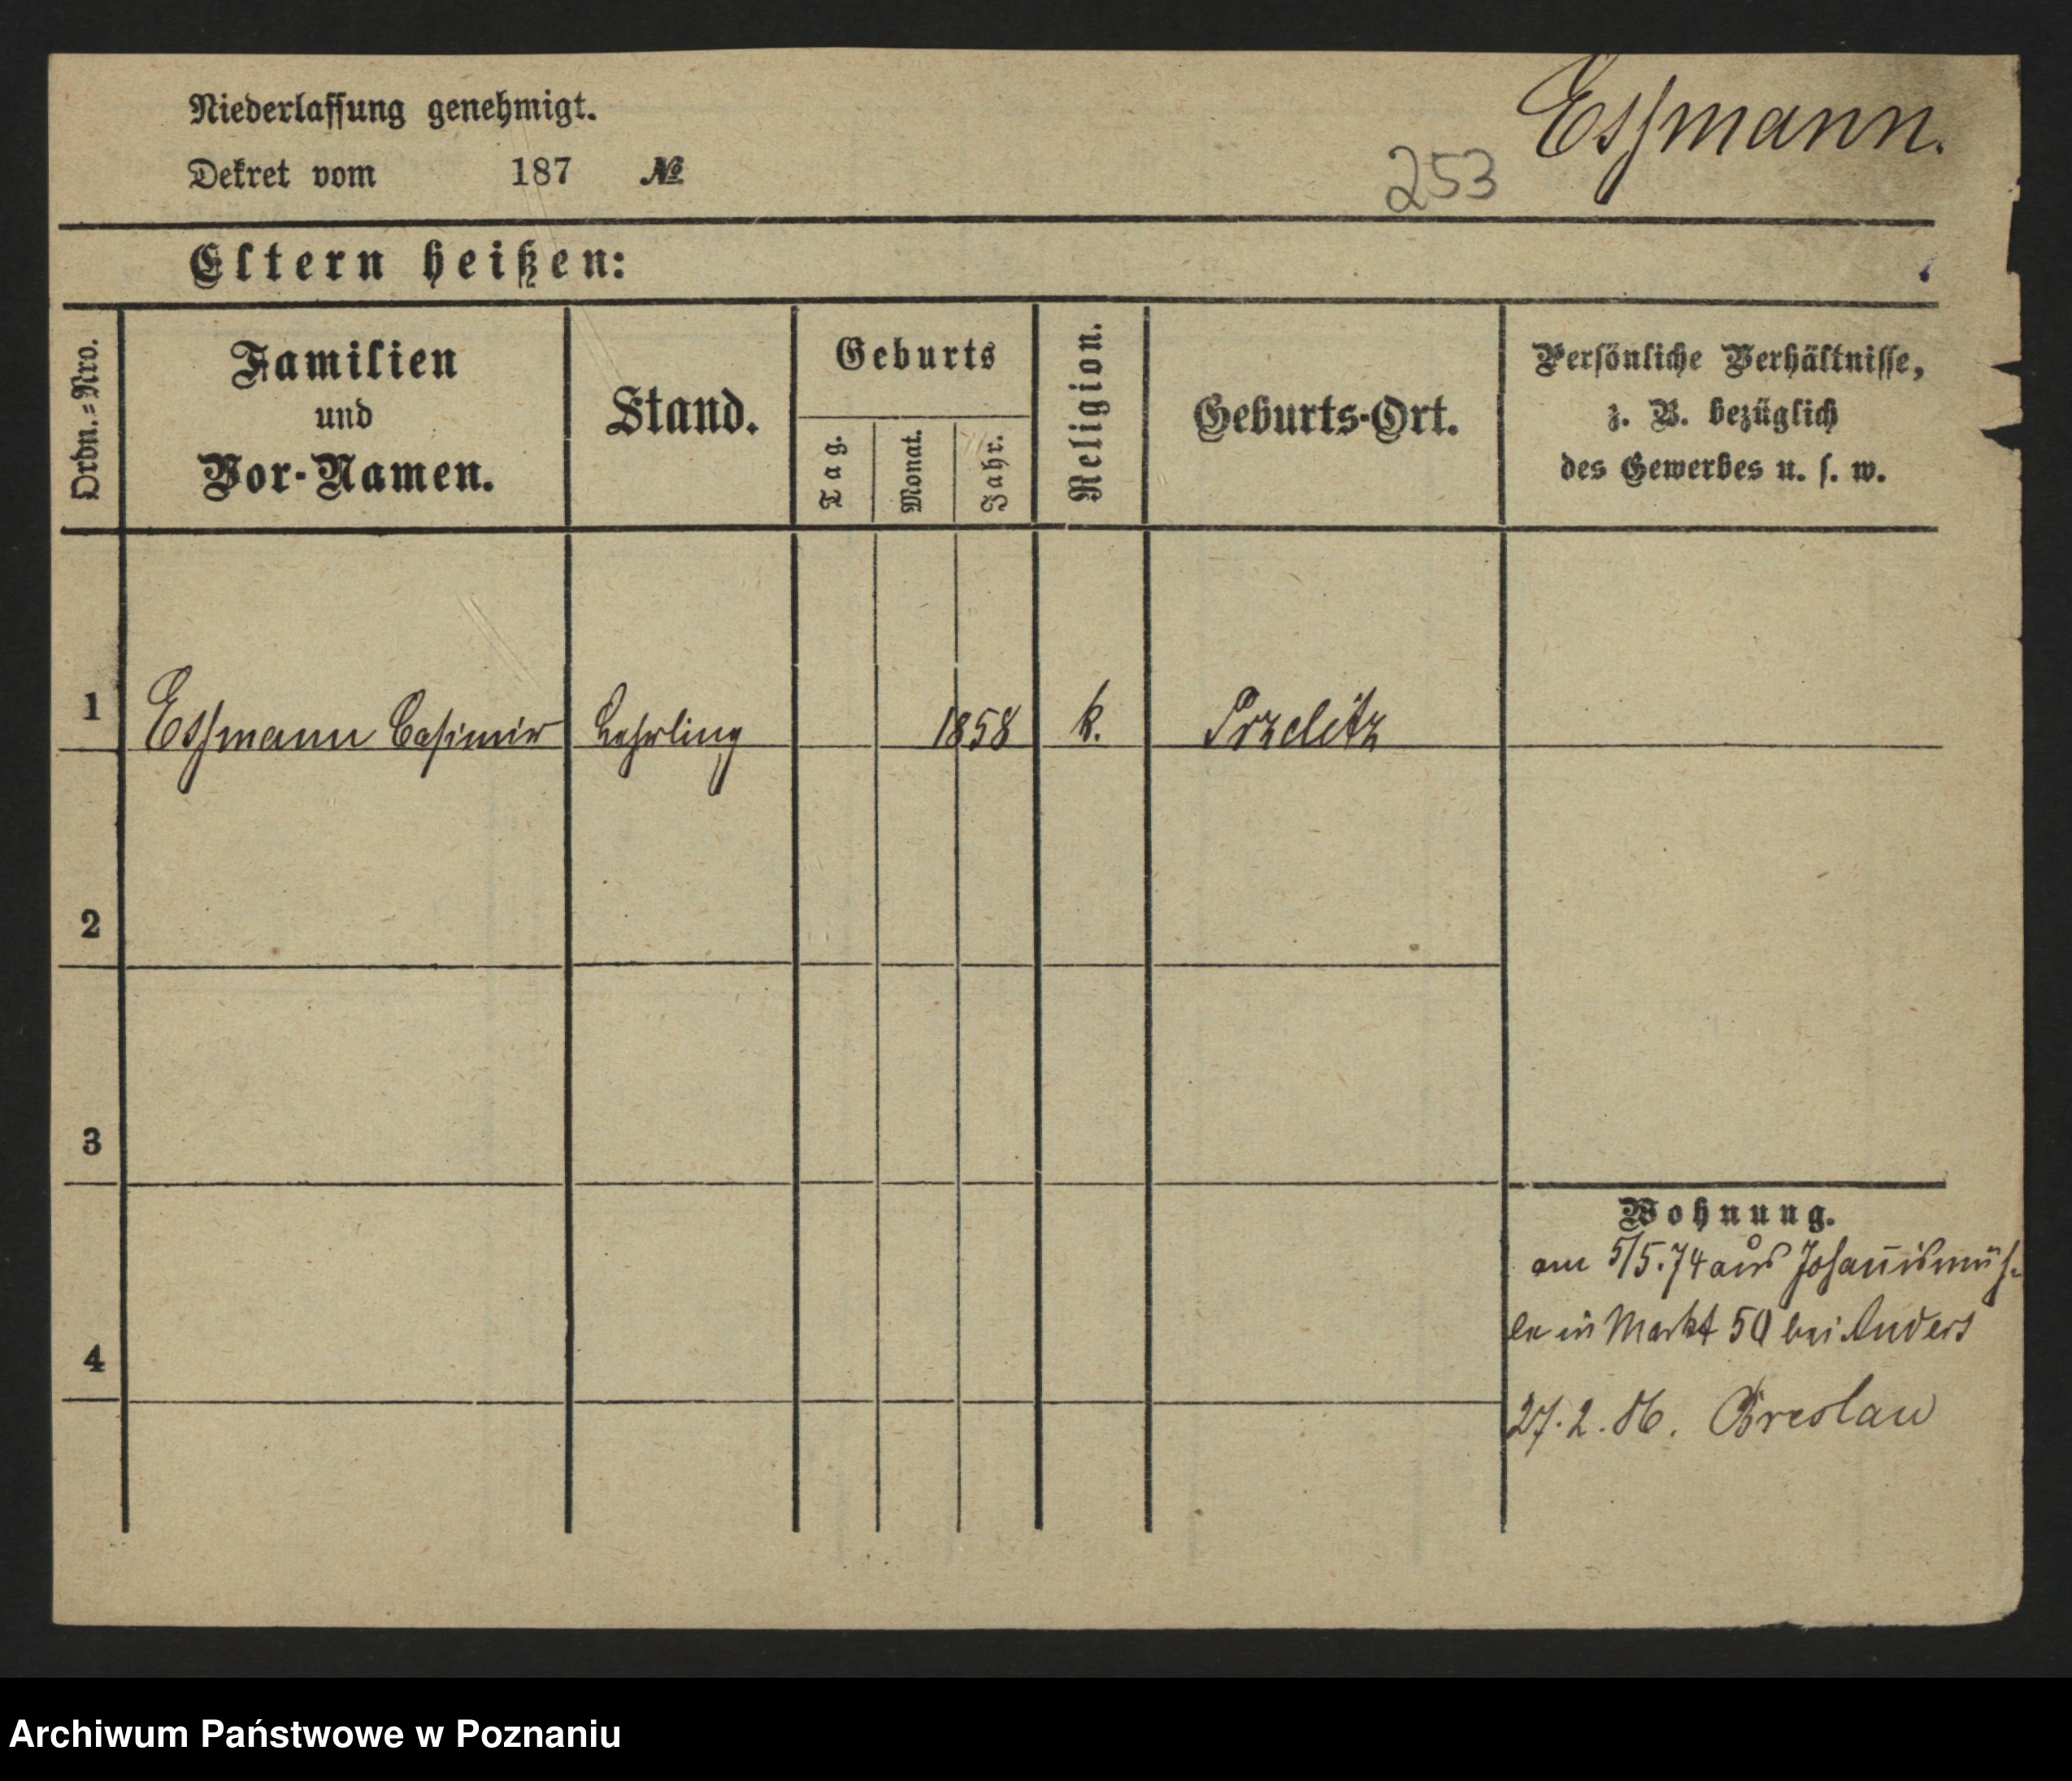 Niederlassung genehmigt.
Essmann.
Dekret vom 187 №
253
Eltern heißen:
Ordn.=Nro.
Familien
und
Vor-Namen.
Stand.
Geburts
Tag.
Monat.
Jahr.
Religion.
Geburts-Ort.
Persönliche Verhältnisse,
z. B. bezüglich
des Gewerbes u. s. w.
1 Essmann Casimir Lehrling 1858 k.
2
3
4
Wohnung.
am 5/5.74 aus Johannismüh-
le in Markt 50 bei Anders
27.2.86. Breslau
Archiwum Państwowe w Poznaniu